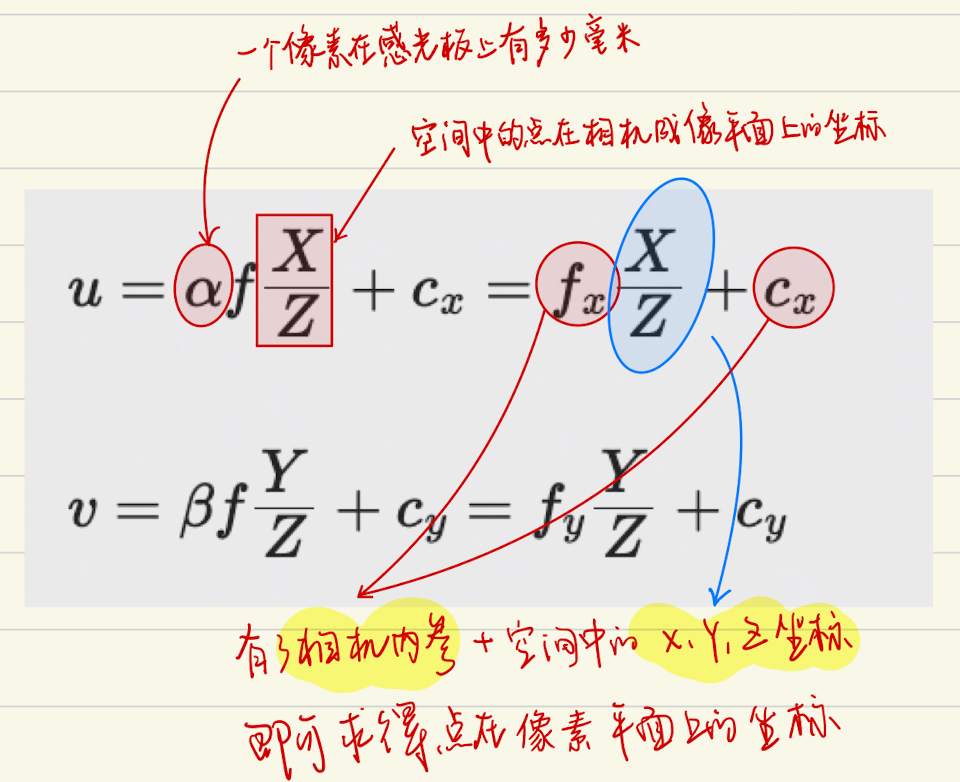 一个像素在感光板上有多少毫米
空间中的点在相机成像平面上的坐标
u = αf X/Z + c_x = f_x X/Z + c_x
v = βf Y/Z + c_y = f_y Y/Z + c_y
有了相机内参 + 空间中的 X, Y, Z 坐标
即可求得点在像素平面上的坐标